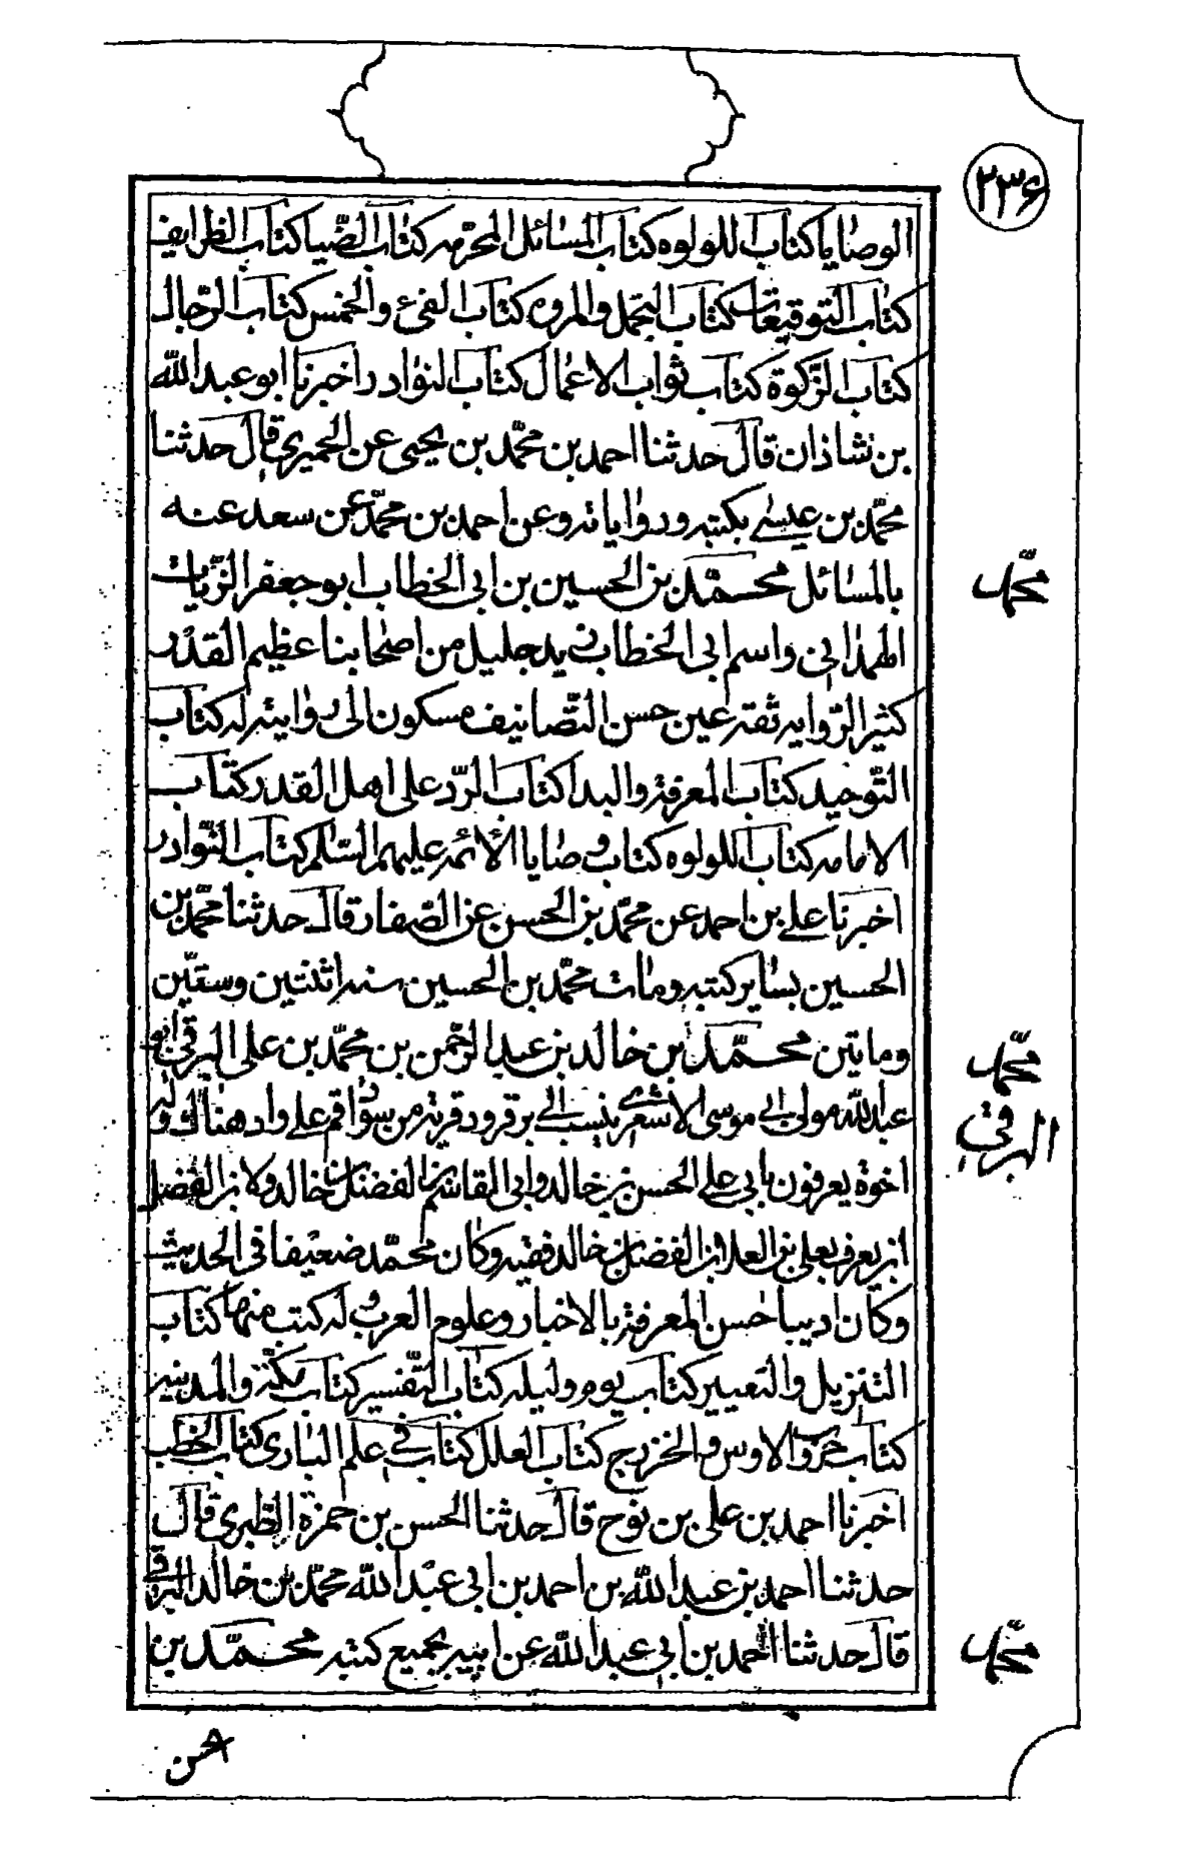 ٢٣۶
الوصايا كتاب اللولوه كتاب المسائل المحرمه كتاب الضيا كتاب الظرايف
كتاب التوقيعات كتاب التجمل والمروه كتاب الفئ والخمس كتاب الرجال
كتاب الزكوة كتاب ثواب الاعمال كتاب النوادر اخبرنا ابو عبد الله
بن شاذان قال حدثنا احمد بن محمد بن يحيى عن الحميرى قال حدثنا
محمد بن عيسى بكتبه ورواياته وعن احمد بن محمد عن سعد عنه
بالمسائل محمد بن الحسين بن ابى الخطاب ابو جعفر الزيات
محمد
الهمدانى واسم ابى الخطاب زيد جليل من اصحابنا عظيم القدر
كثير الروايه ثقة عين حسن التصانيف مسكون الى روايته له كتاب
التوحيد كتاب المعرفة والبدا كتاب الرد على اهل القدر كتاب
الامامه كتاب اللولوه كتاب وصايا الأئمه عليهم السلم كتاب النوادر
اخبرنا على بن احمد عن محمد بن الحسن عن الصفار قال حدثنا محمد بن
الحسين بساير كتبه ومات محمد بن الحسين سنه اثنتين وستين
ومايتين محمد بن خالد بن عبد الرحمن بن محمد بن على البرقى ابو
محمد
عبد الله مولى ابى موسى الاشعرى ينسب الى برقرود قرية من سواد قم على واد هناك وله
البرقى
اخوة يعرفون بابى على الحسن بن خالد وابى القاسم الفضل بن خالد ولابن الفضل
ابن يعرف بعلى بن العلا بن الفضل بن خالد فقيه وكان محمد ضعيفا فى الحديث
وكان اديبا حسن المعرفة بالاخبار وعلوم العرب وله كتب منها كتاب
التنزيل والتعبير كتاب يوم وليله كتاب التفسير كتاب مكة والمدينه
كتاب حروب الاوس والخزرج كتاب العلل كتاب فى علم البارى كتاب الخطب
اخبرنا احمد بن على بن نوح قال حدثنا الحسن بن حمزة الطبرى قال
حدثنا احمد بن عبد الله بن احمد بن ابى عبد الله محمد بن خالد البرقى
قال حدثنا احمد بن ابى عبد الله عن ابيه بجميع كتبه محمد بن
محمد
حسن